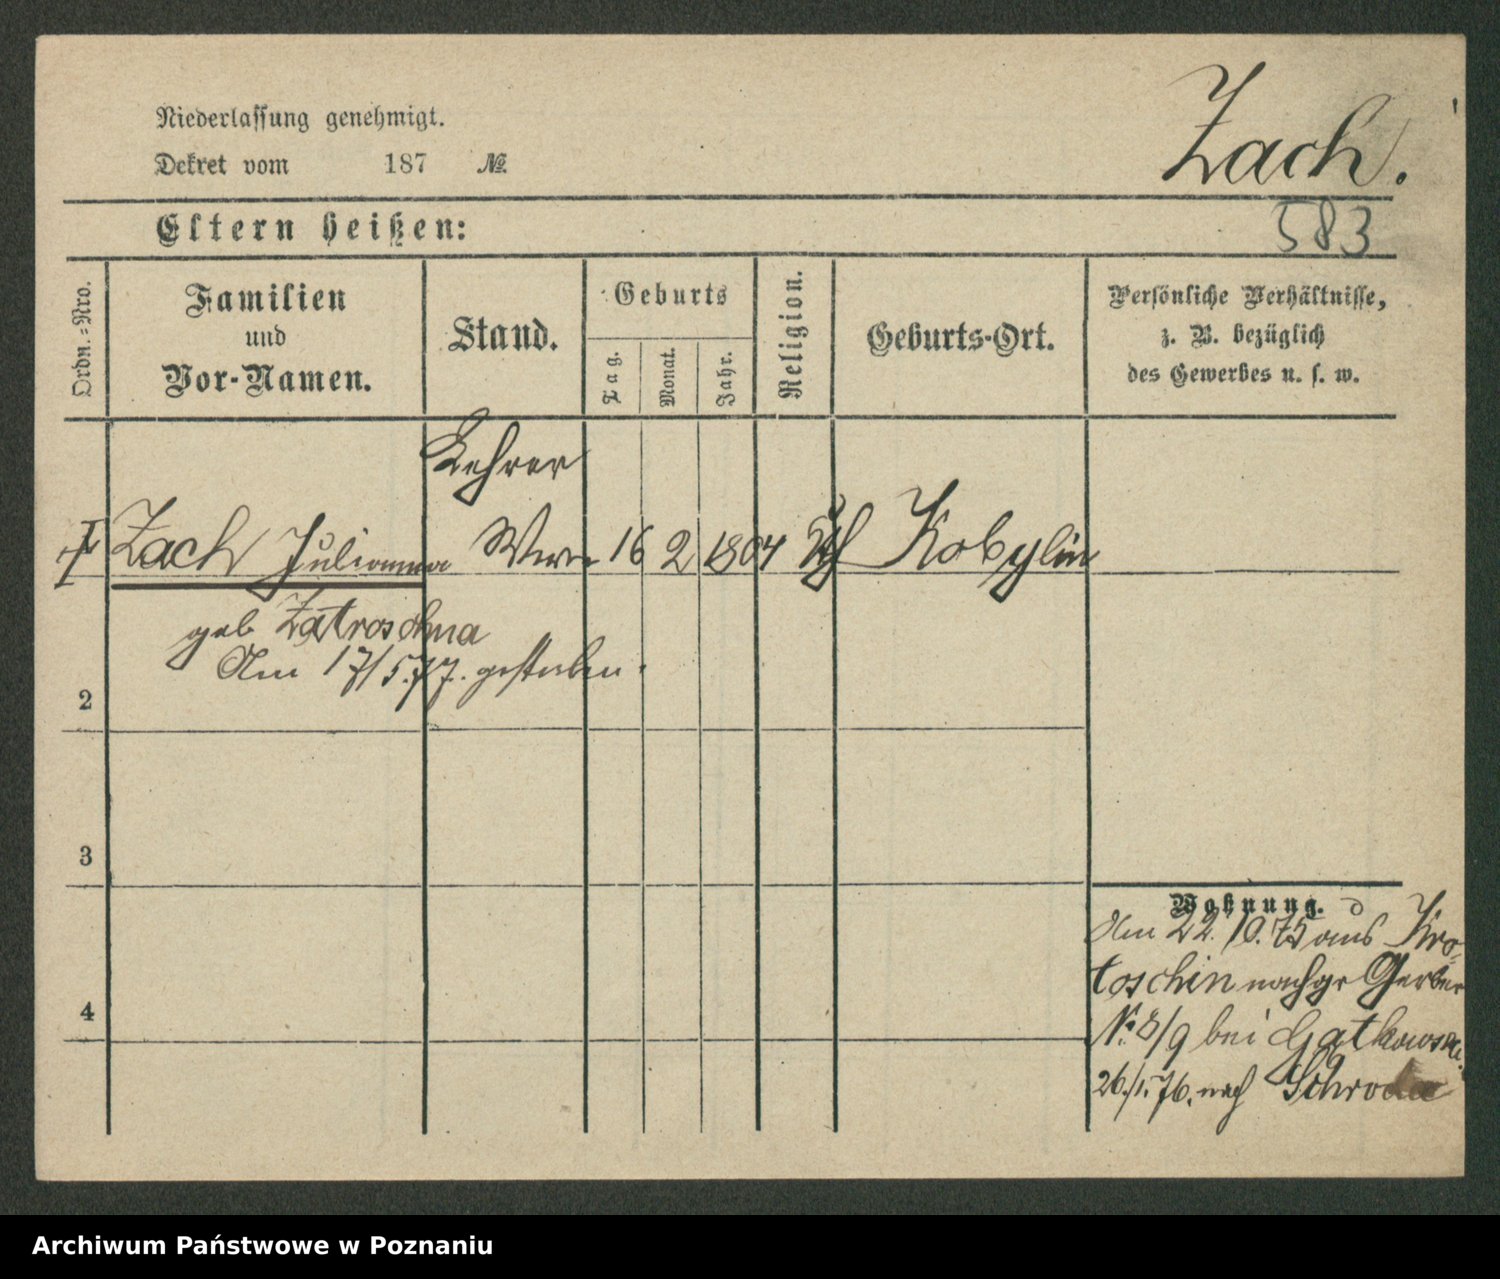 Niederlassung genehmigt.
Dekret vom 187 №
Zach.
583
Eltern heißen:
Ordn.=Nro.
Familien
und
Vor-Namen.
Stand.
Geburts
Tag.
Monat.
Jahr.
Religion.
Geburts-Ort.
Persönliche Verhältnisse,
z. B. bezüglich
des Gewerbes u. s. w.
Lehrer
I Zach Julianna Wwe 16 2 1804 Kobylin
geb Zatroschna
Am 17/5.77. gestorben.
2
3
4
Wohnung.
Am 22.10.75 aus Kro-
toschin nach gr Gerber
No 8/9 bei Gatkowski.
26./1.76. nach Schroda